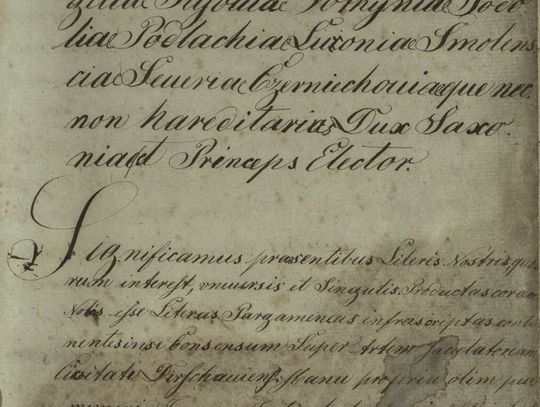 Kijovia Volhynia Podo
lia Podlachia Livonia Smolens
cia Severia Czerniechoviaeque nec
non haereditarius Dux Saxo.
niae et Princeps Elector.
Significamus praesentibus Literis Nostris quo
rum interest, universis et Singulis Productas coram
Nobis esse Literas Pargameneas infrascriptas conti
nentes in se Consensum Super Artem
Civitati Dirschaviensi Manu propria olim